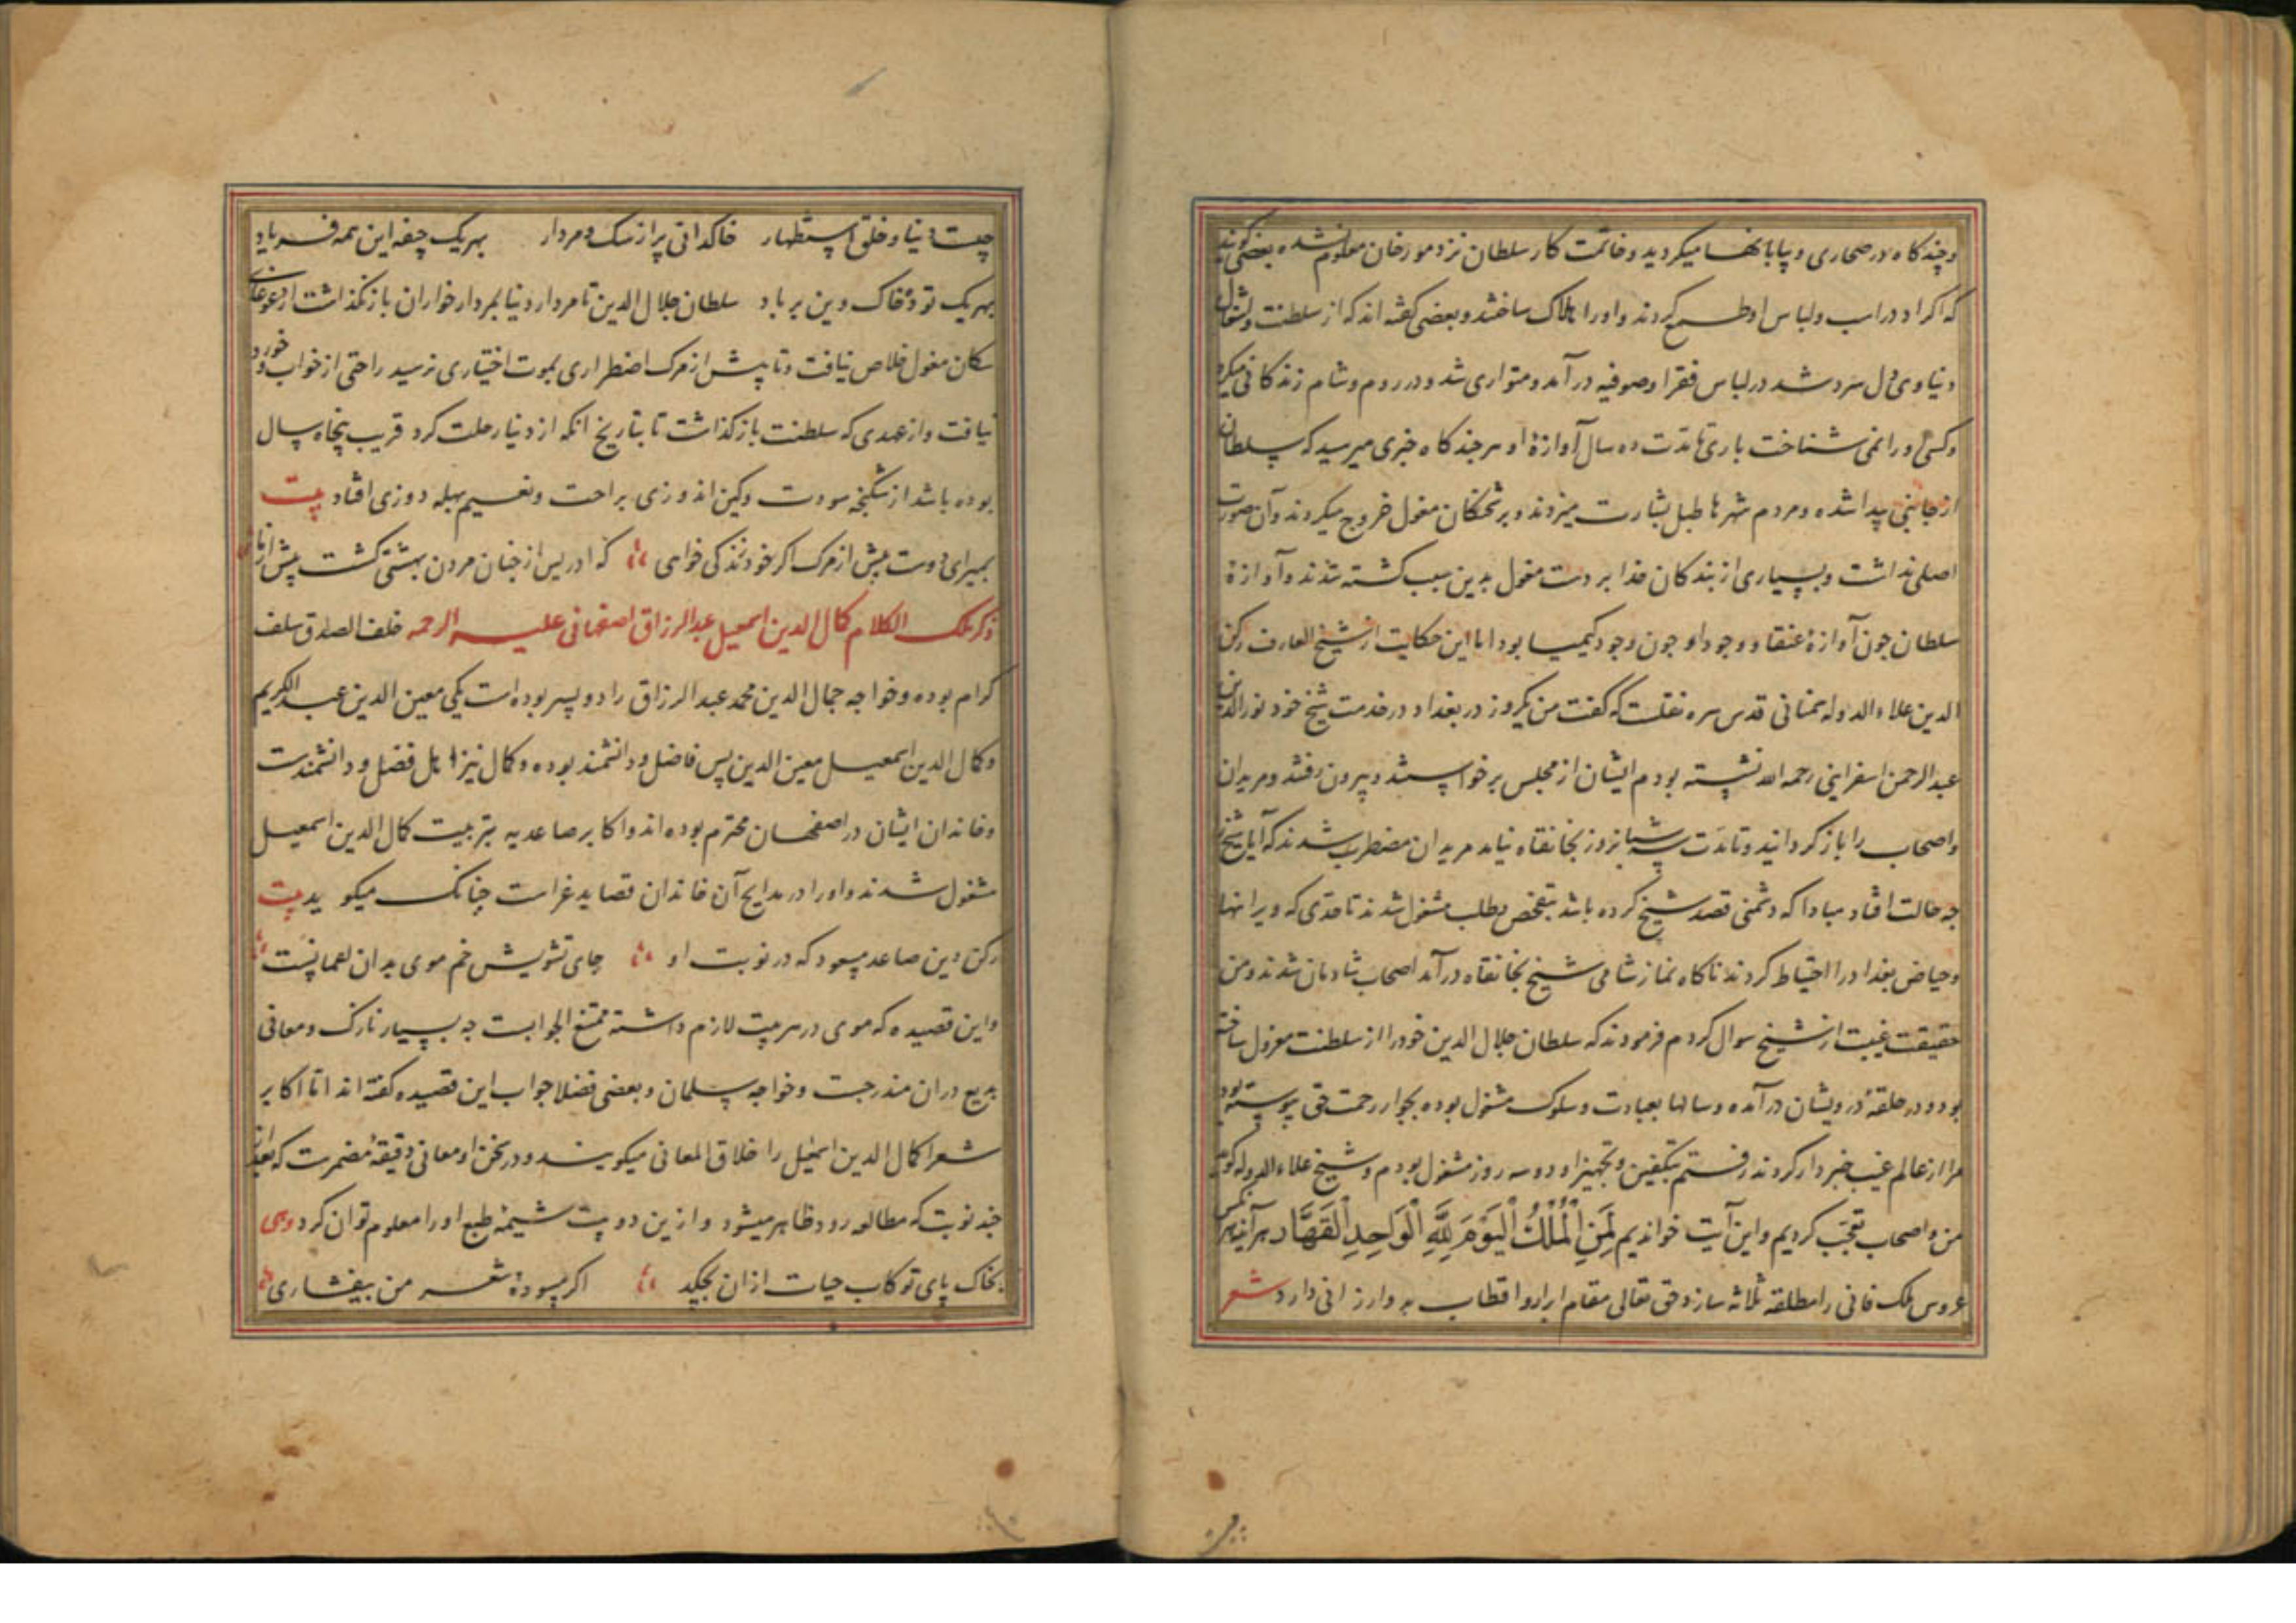 وچند کاه در صحاری و بیابانها میکردید و خاتمت کار سلطان نزد مورخان معلوم نشده بعضی کویند
که اکراد در اسب و لباس او طمع کردند و اورا هلاک ساختند و بعضی کفته اند که از سلطنت و اشغال
دنیاوی دل سرد شد در لباس فقرا و صوفیه در آمد و متواری شد و در روم و شام زندکانی میکرد
و کسی اورا نمی شناخت باری تا مدت ده سال آوازهٔ او هر چند کاه خبری میرسید که سلطان
از جانبی پیدا شده و مردم شهرها طبل بشارت میزدند و بر شحنکان مغول خروج میکردند و آن صورت
اصلی نداشت و بسیاری از بندکان خدا بر دست مغول بدین سبب کشته شدند و آوازهٔ
سلطان جون آوازهٔ عنقا و وجود او جون وجود کیمیا بود اما این حکایت از شیخ العارف رکن
الدین علاء الدوله سمنانی قدس سره نقلست که کفت من یکروز در بغداد در خدمت شیخ خود نورالدین
عبدالرحمن اسفراینی رحمه الله نشسته بودم ایشان از مجلس برخواستند و بیرون رفتند و مریدان
و اصحاب را باز کردانیدند و تا مدت سه شبانروز بخانقاه نیامد مریدان مضطرب شدند که آیا شیخ را
جه حالت افتاد مبادا که دشمنی قصد شیخ کرده باشد بتفحص و طلب مشغول شدند تا حدی که ویرانها
و حیاض بغداد را احتیاط کردند ناکاه نماز شامی شیخ بخانقاه در آمد اصحاب شادمان شدند و من
حقیقت غیبت از شیخ سوال کردم فرمودند که سلطان جلال الدین خود را از سلطنت معزول ساخته
بود و در حلقهٔ درویشان در آمده و سالها بعبادت و سلوک مشغول بوده بجوار رحمت حق پیوسته بود
مرا از عالم غیب خبردار کردند رفتم بتکفین و تجهیز او دو سه روز مشغول بودم و شیخ علاء الدوله کوید
من و اصحاب تعجب کردیم و این آیت خواندیم لِمَنِ الْمُلْكُ الْيَوْمَ لِلَّهِ الْوَاحِدِ الْقَهَّارِ هر آینه هر کس
عروس ملک فانی را مطلقه ثلاثه سازد حق تعالی مقام ابرار و اقطاب بدو ارزانی دارد شعر
چیست دنیا و خلق استظهار خاکدانی پر از سک و مردار بهر یک جیفه این همه فریاد
بهر یک تودهٔ خاک دین بر باد سلطان جلال الدین تا مردار دنیا بمردار خواران باز نکذاشت از غوغای
سکان مغول خلاص نیافت و تا پیش از مرک اضطراری بموت اختیاری نرسید راحتی از خواب و خورد
نیافت و از عهدی که سلطنت باز کذاشت تا بتاریخ انکه از دنیا رحلت کرد قریب پنجاه سال
بوده باشد از شکنجه سودت و کین اندوزی براحت و نعیم بهله دوزی افتاد بیت
بمیر ای دوست پیش از مرک اکر خود زندکی خواهی که ادریس از جنان مردن بهشتی کشت پیش از ما
ذکر ملک الکلام کمال الدین اسمعیل عبدالرزاق اصفهانی علیه الرحمه خلف الصدق سلف
کرام بوده و خواجه جمال الدین محمد عبدالرزاق را دو پسر بوده است یکی معین الدین عبدالکریم
و کمال الدین اسمعیل معین الدین پس فاضل و دانشمند بوده و کمال نیز اهل فضل و دانشمندست
و خاندان ایشان در اصفهان محترم بوده اند و اکابر صاعدیه بتربیت کمال الدین اسمعیل
مشغول شدند و اورا در مدایح آن خاندان قصاید غراست جنانک میکوید بیت
رکن دین صاعد مسعود که در نوبت او جای تشویش خم موی بدان لعمانیست
و این قصیده که موی در هر بیت لازم داشته ممتنع الجوابست جه بسیار نازک و معانی
بدیع دران مندرجست و خواجه سلمان و بعضی فضلا جواب این قصیده کفته اند اما اکابر
شعرا کمال الدین اسمعیل را خلاق المعانی میکویند و در سخن او معانی دقیقهٔ مضمرست که بعد از
جند نوبت که مطالعه رود ظاهر میشود و ازین دو بیت شیمهٔ طبع اورا معلوم توان کرد وهی
بخاک پای تو کاب حیات ازان بجکد اکر مسودهٔ شعر من بیفشاری